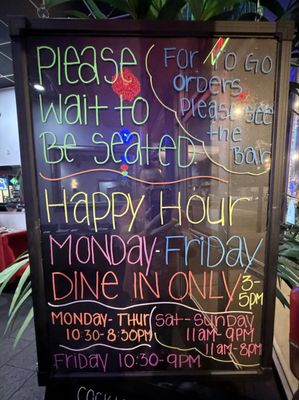 Please
Wait to
Be Seated
For To Go
orders
Please see
the
Bar
Happy Hour
Monday-Friday
Dine in only 3-
5pm
Monday-Thur
10:30-8:30pm
Sat-Sunday
11am-9pm
11am-8pm
Friday 10:30-9pm